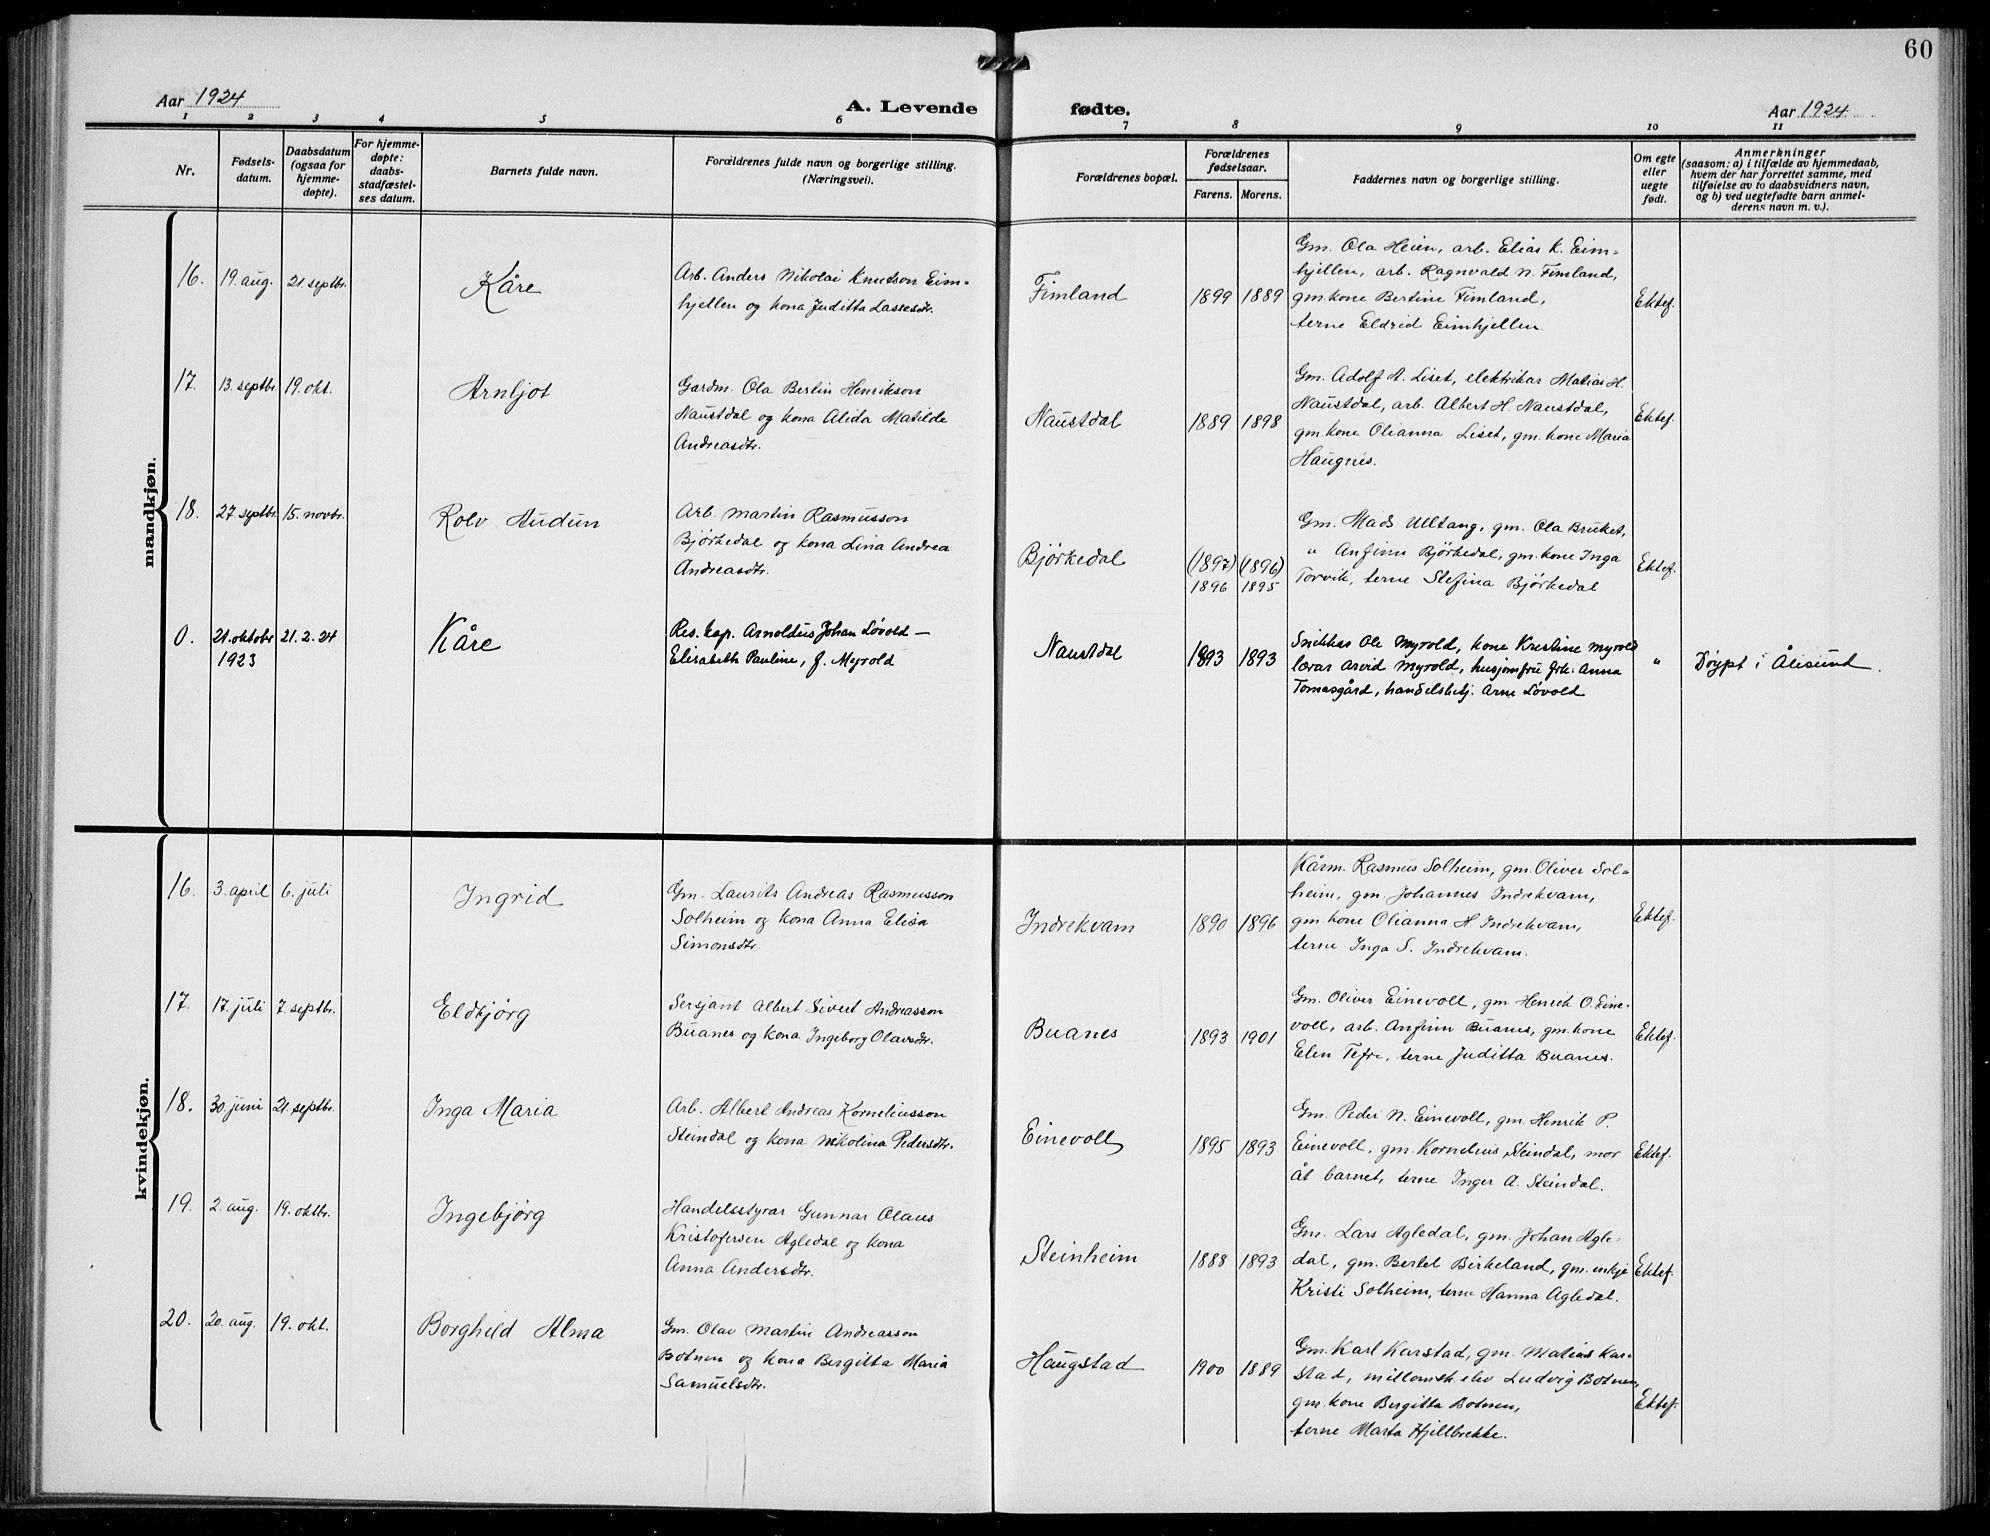 60
Aar 1924
A. Levende fødte.
Aar 1924
1 2 3 4 5 6 7 8 9 10 11
Nr.
Fødsels-
datum.
Daabsdatum
(ogsaa for
hjemme-
døpte).
For hjemme-
døpte:
daabs-
stadfæstel-
ses datum.
Barnets fulde navn.
Forældrenes fulde navn og borgerlige stilling.
(Næringsvei).
Forældrenes bopæl.
Forældrenes
fødselsaar.
Farens. Morens.
Faddernes navn og borgerlige stilling.
Om egte
eller
uegte
født.
Anmerkninger
(saasom: a) i tilfælde av hjemmedaab,
hvem der har forrettet samme, med
tilføielse av to daabsvidners navn,
og b) ved uegtefødte barn anmel-
derens navn m. v.).
mandkjøn.
16. 19. aug. 21. septbr. Kåre
Arb. Anders Nikolai Knudson Eim-
hjellen og kona Juditta Lassesdtr.
Fimland 1899 1889
Gm. Ola Heien, arb. Elias K. Eim-
hjellen, arb. Ragnvald N. Fimland,
gm. kone Bertine Fimland,
terne Eldrid Eimhjellen.
Ektef.
17. 13. septbr. 19. okt. Arnljot
Gardm. Ola Berlin Henrikson
Naustdal og kona Alida Matilde
Andreasdtr.
Naustdal 1889 1898
Gm. Adolf A. Liset, elektrikar Matias H.
Naustdal, arb. Albert H. Naustdal,
gm. kone Olianna Liset, gm. kone Maria
Haugnes.
Ektef.
18. 27. septbr. 15. novbr. Rolv Audun
Arb. Martin Rasmusson
Bjørkedal og kona Lina Andrea
Andreasdtr.
Bjørkedal (1897) (1896)
1896 1895
Gm. Mads Ulltang, gm. Ola Bruket,
" Anfinn Bjørkedal, gm. kone Inga
Torvik, terne Stefina Bjørkedal
Ektef.
0. 21. oktobr 21. 2. 24 Kåre
1923
Res. kap. Arnoldus Johan Løvold —
Elisabeth Pauline, f. Myrold
Naustdal 1893 1893
Snikkar Ole Myrold, kone Kristine Myrold
lærar Arvid Myrold, husjomfru frk. Anna
Tomasgård, handelsbetj. Arne Løvold
" Døypt i Ålesund.
kvindekjøn.
16. 3. april 6. juli Ingrid
Gm. Laurits Andreas Rasmusson
Solheim og kona Anna Elisa
Simonsdtr.
Indrekvam 1890 1896
Kårm. Rasmus Solheim, gm. Oliver Sol-
heim, gm. Johannes Indrekvam,
gm. kone Olianna H. Indrekvam,
terne Inga S. Indrekvam.
Ektef.
17. 17. juli 7. septbr. Eldbjørg
Sersjant Albert Sivert Andreasson
Buanes og kona Ingeborg Olavsdtr.
Buanes 1893 1901
Gm. Oliver Einevoll, gm. Henrik O. Eine-
voll, arb. Anfinn Buanes, gm. kone
Elen Tefre, terne Juditta Buanes.
Ektef.
18. 30. juni 21. septbr. Inga Maria
Arb. Albert Andreas Korneliusson
Steindal og kona Nikolina Pedersdtr.
Einevoll 1895 1893
Gm. Peder N. Einevoll, gm. Henrik P.
Einevoll, gm. Kornelius Steindal, mor
åt barnet, terne Inger A. Steindal.
Ektef.
19. 2. aug. 19. oktbr. Ingebjørg
Handelsstyrar Gunnar Olaus
Kristofersen Agledal og kona
Anna Andersdtr.
Steinheim 1888 1893
Gm. Lars Agledal, gm. Johan Agle-
dal, gm. Bertel Birkeland, gm. enkje
Kristi Solheim, terne Hanna Agledal.
Ektef.
20. 20. aug. 19. okt. Borghild Alma
Gm. Olav Martin Andreasson
Botnen og kona Bergitta Maria
Samuelsdtr.
Haugstad 1900 1889
Gm. Karl Karstad, gm. Matias Kar-
stad, millomsk. elev Ludvig Botnen,
gm. kone Bergitta Botnen,
terne Marta Hjellbrekke.
Ektef.